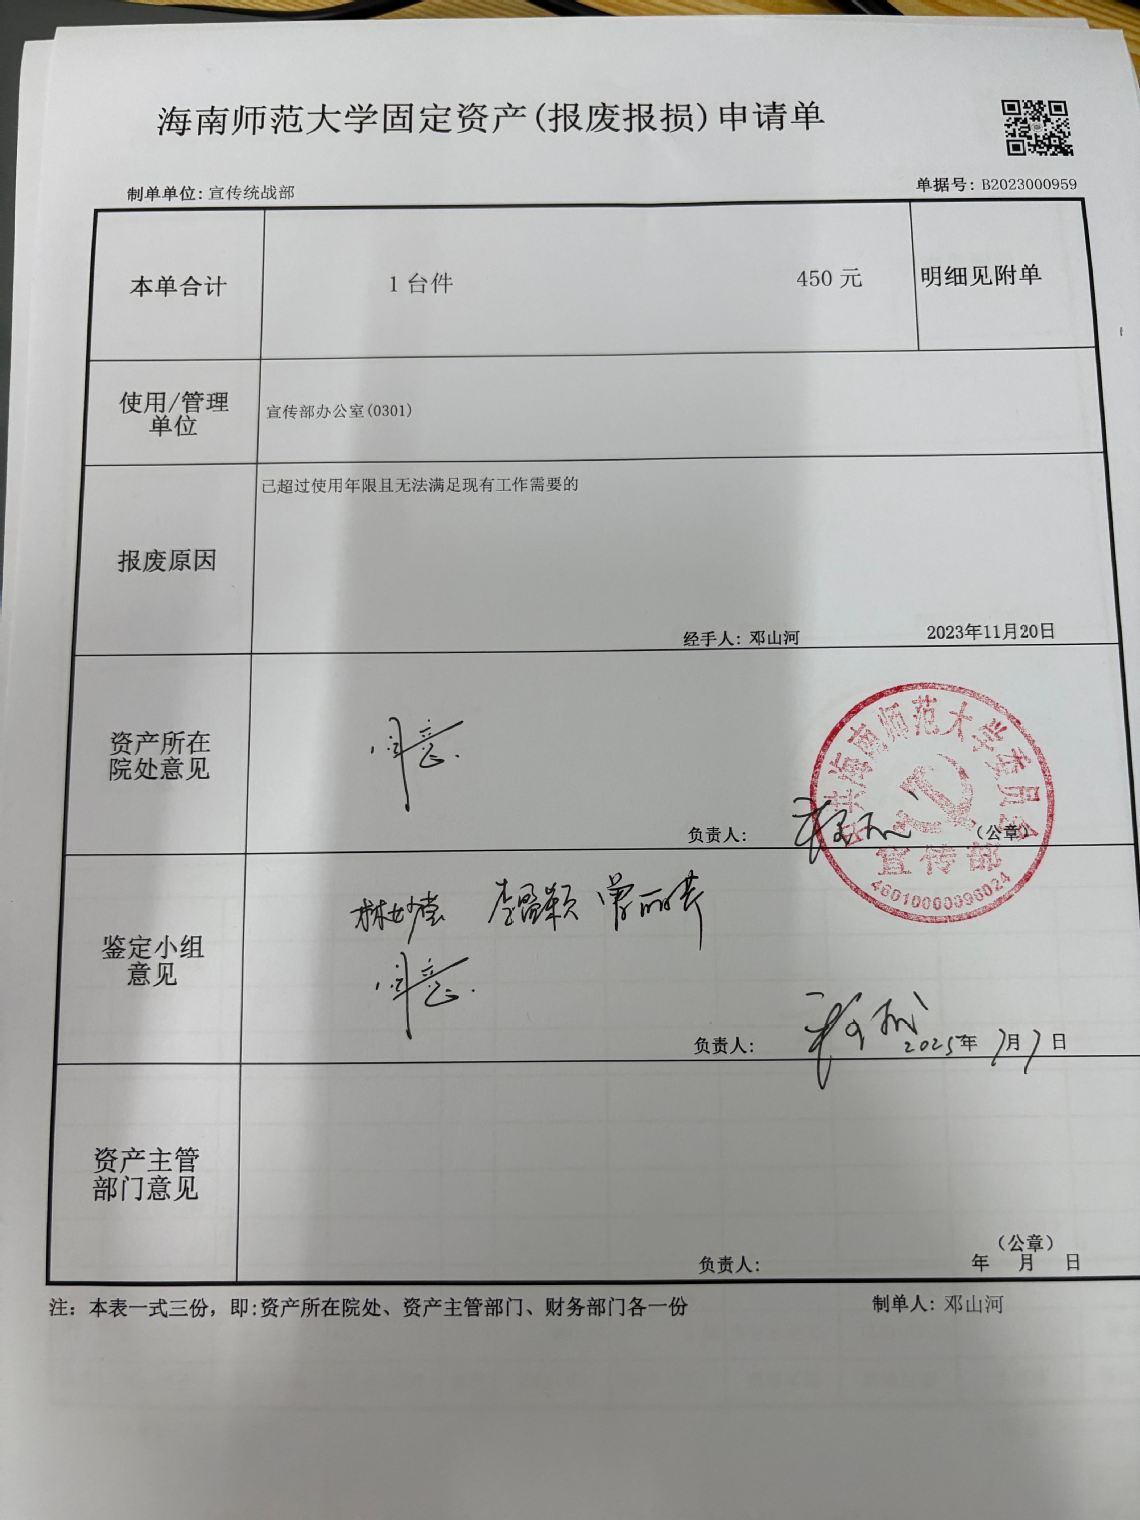 海南师范大学固定资产(报废报损)申请单
制单单位: 宣传统战部
单据号: B2023000959
本单合计
1 台件
450 元
明细见附单
使用/管理
单位
宣传部办公室(0301)
报废原因
已超过使用年限且无法满足现有工作需要的
经手人: 邓山河
2023年11月20日
资产所在
院处意见
同意.
负责人:
(公章)
中共海南师范大学委员会
宣传部
46010000096024
鉴定小组
意见
李盈颖 曾丽琪
同意.
负责人:
2025年7月7日
资产主管
部门意见
(公章)
负责人:
年 月 日
注: 本表一式三份, 即:资产所在院处、资产主管部门、财务部门各一份
制单人: 邓山河